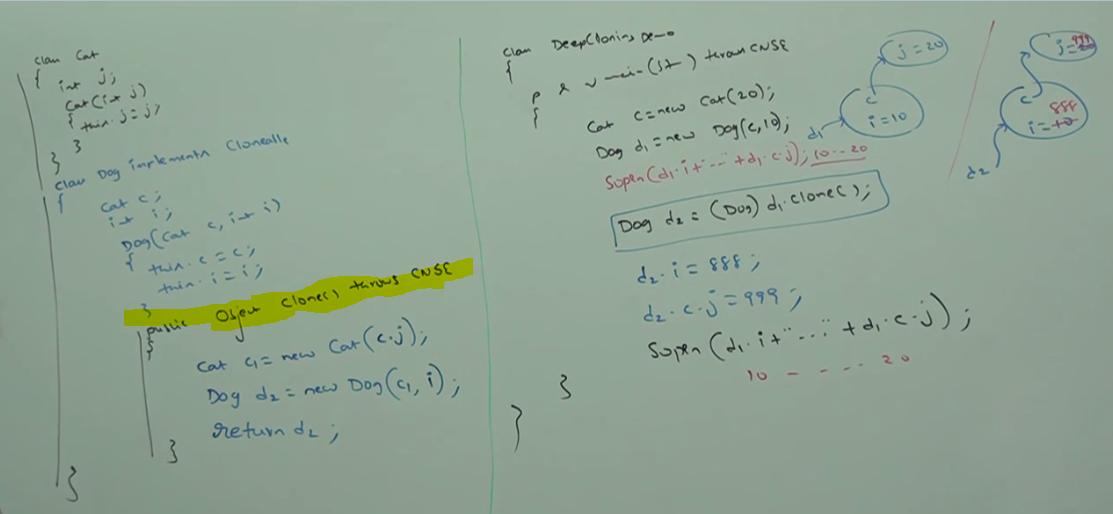 class Cat
{
int j;
Cat(int j)
{
this.j=j;
}
}
class Dog implements Cloneable
{
Cat c;
int i;
Dog(Cat c, int i)
{
this.c=c;
this.i=i;
}
public Object clone() throws CNSE
{
Cat c1=new Cat(c.j);
Dog d2=new Dog(c1, i);
return d2;
}
}
class DeepCloning Demo
{
p s v main(
) throws CNSE
{
Cat c=new Cat(20);
Dog d1=new Dog(c,10);
Sopln(d1.i+"---"+d1.c.j); 10---20
Dog d2=(Dog) d1.clone();
d2.i=888;
d2.c.j=999;
Sopln(d1.i+"---"+d1.c.j);
10 - - - - 20
}
}
j=20
c
i=10
d1
j=20 999
c
888
i=10
d2